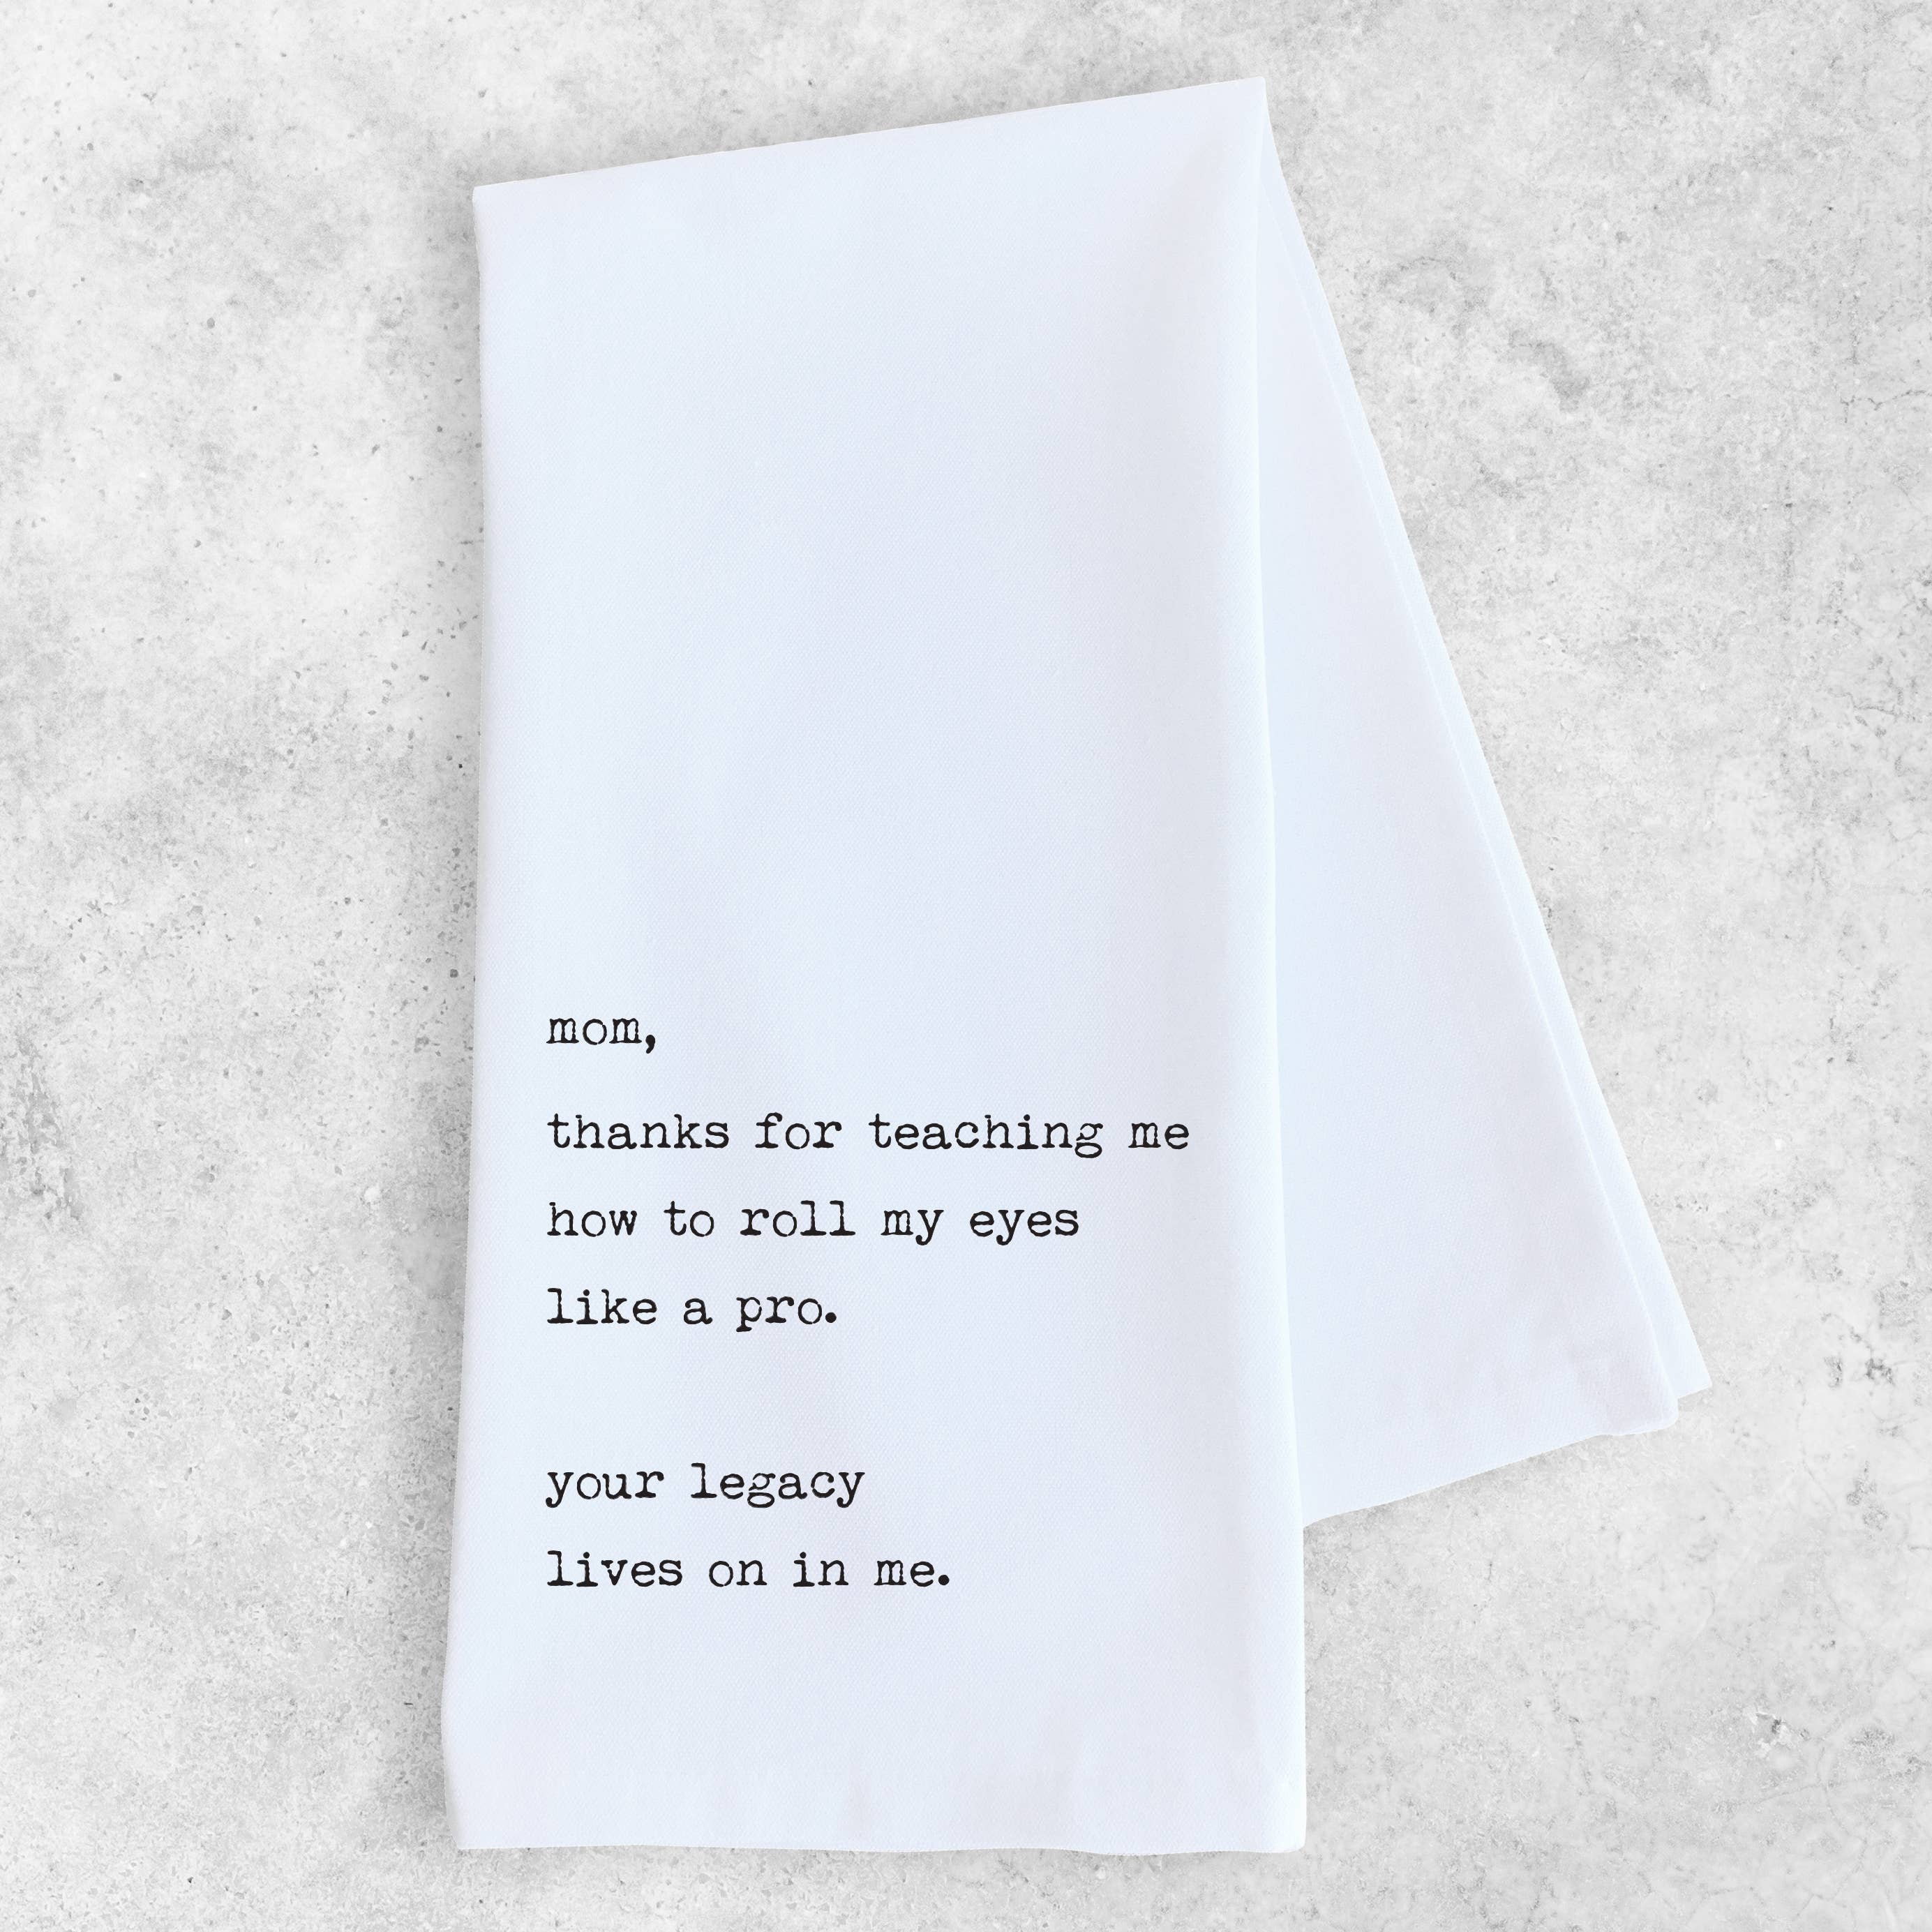 mom,
thanks for teaching me
how to roll my eyes
like a pro.
your legacy
lives on in me.